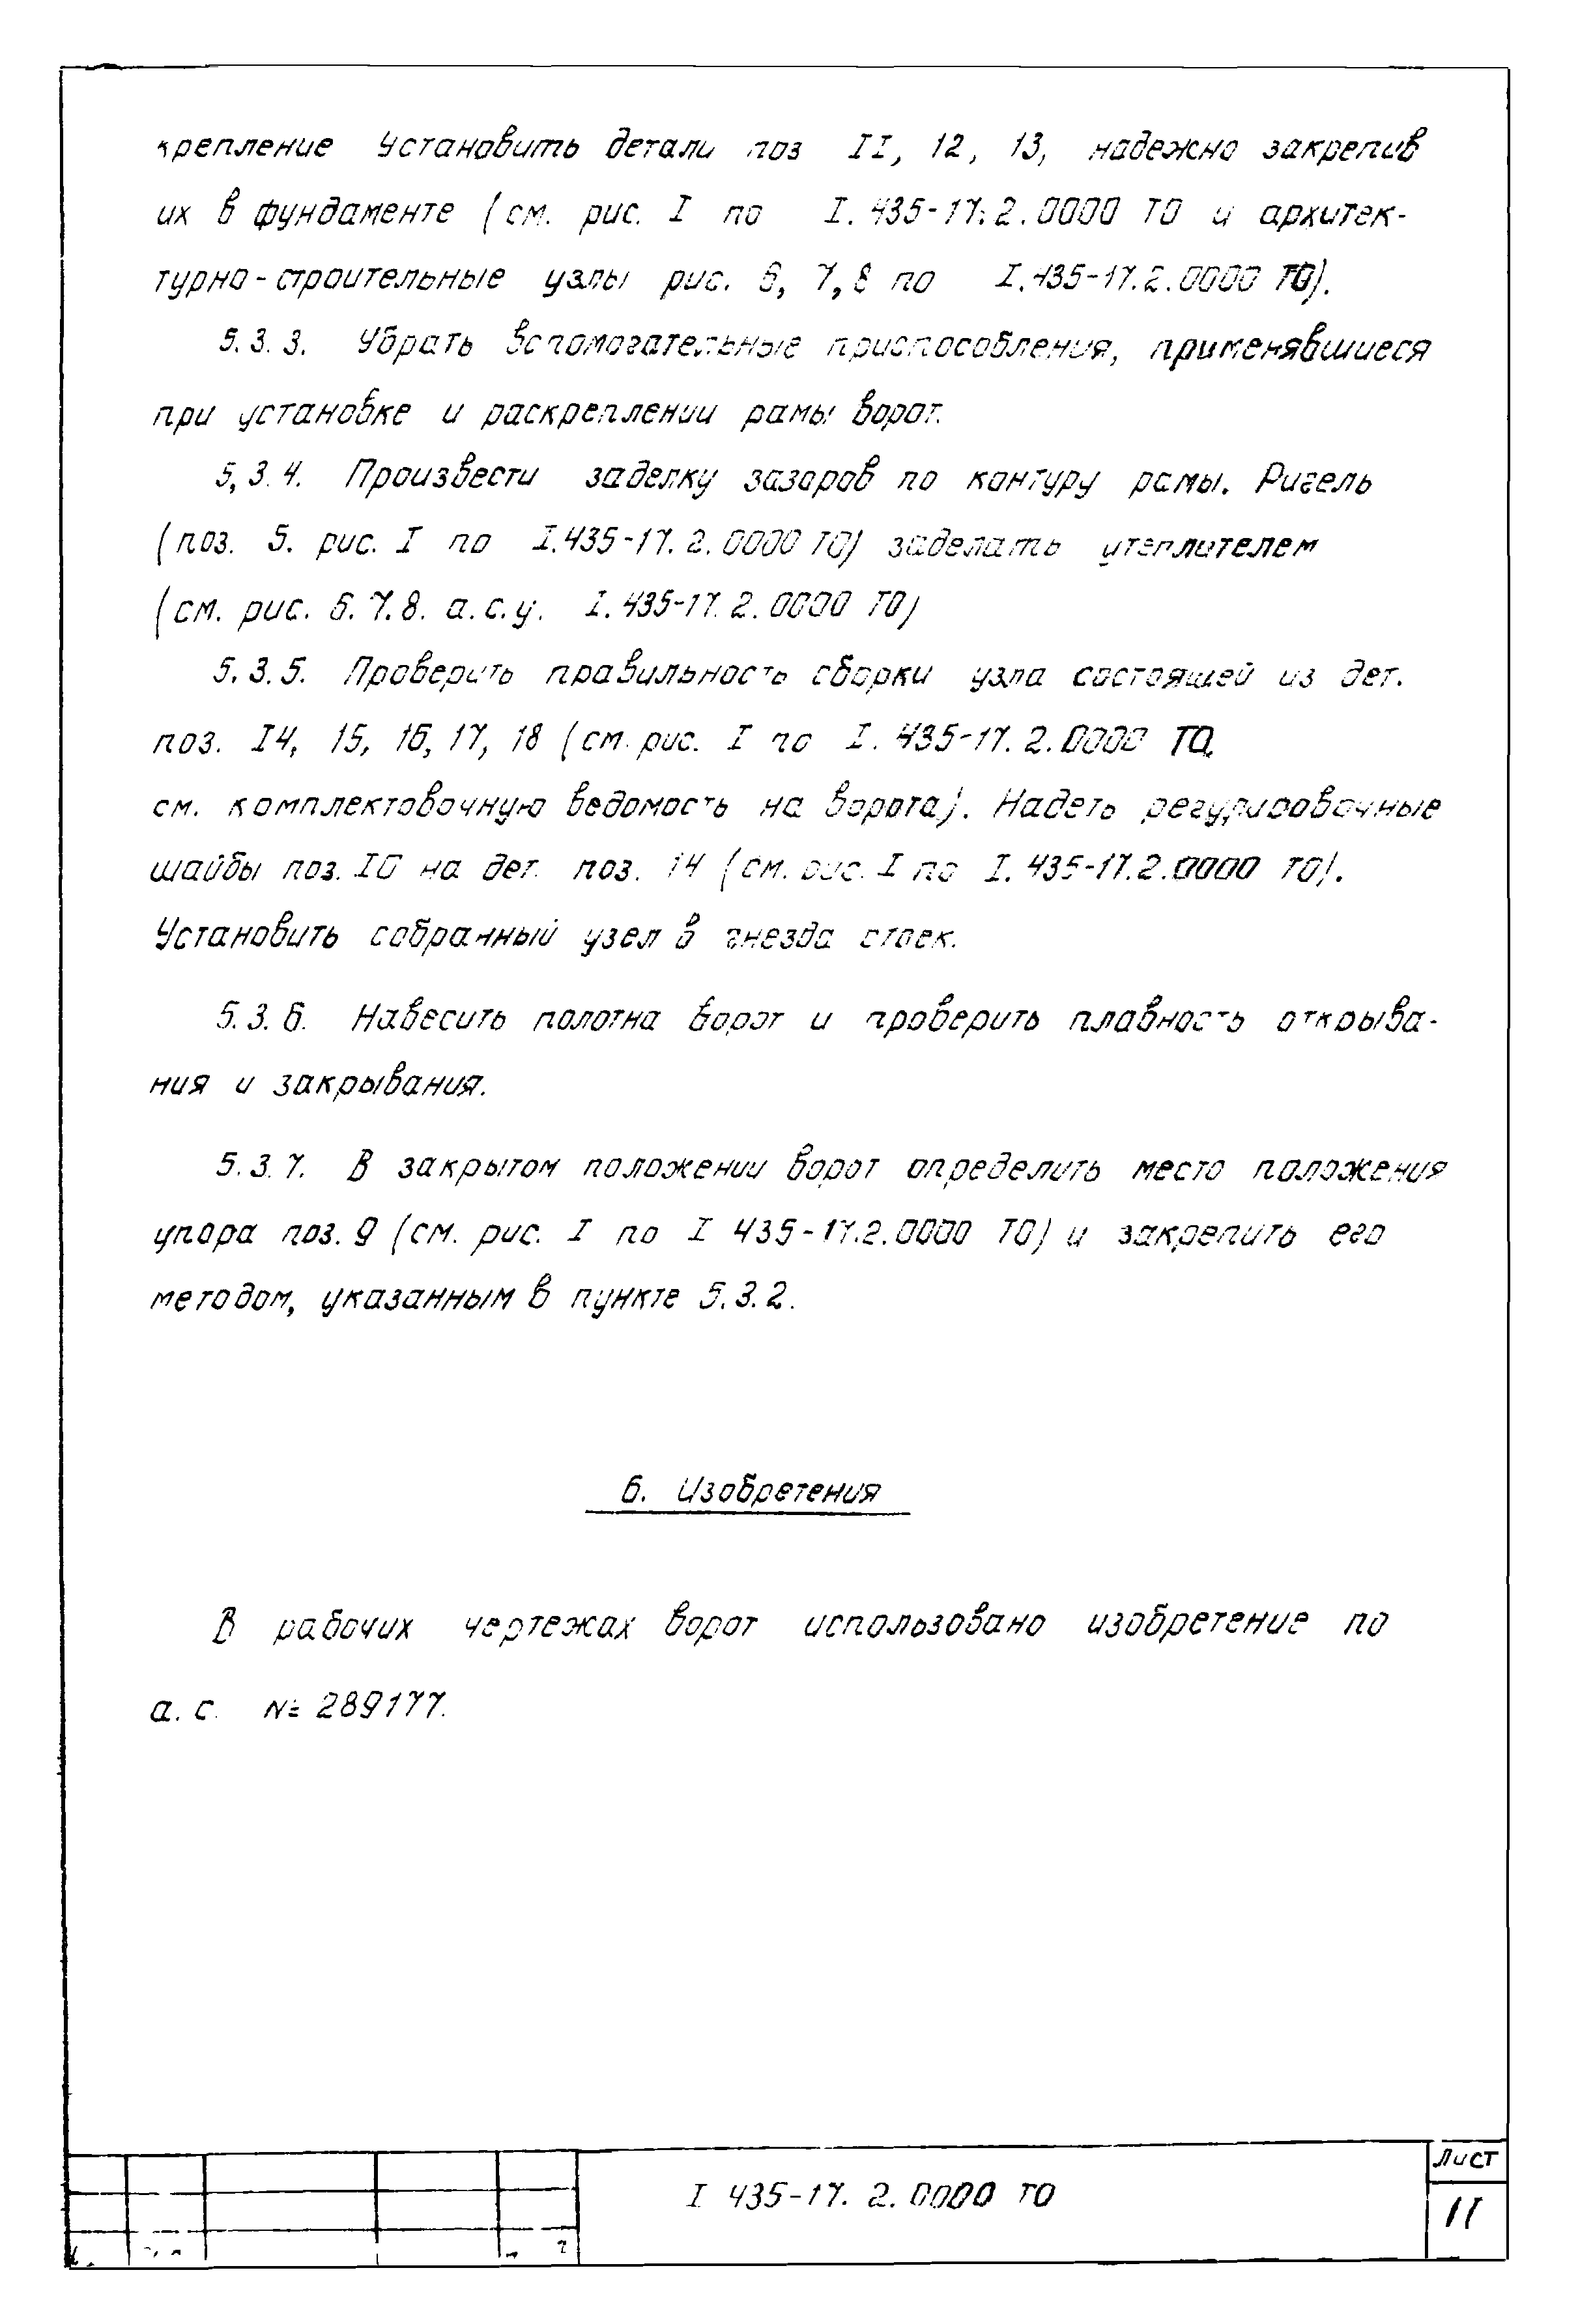 крепление Установить детали поз II, 12, 13, надежно закрепив
их в фундаменте (см. рис. I по I. 435-17.2.0000 ТО и архитек-
турно-строительные узлы рис. 6, 7, 8 по I.435-17.2.0000 ТО).
5.3.3. Убрать вспомогательные приспособления, применявшиеся
при установке и раскреплении рамы ворот.
5,3.4. Произвести заделку зазоров по контуру рамы. Ригель
(поз. 5. рис. I по I.435-17.2.0000 ТО) заделать утеплителем
(см. рис. 6.7.8. а.с.у. I.435-17.2.0000 ТО)
5.3.5. Проверить правильность сборки узла состоящей из дет.
поз. I4, 15, 16, 17, 18 (см. рис. I по I. 435-17.2.0000 ТО,
см. комплектовочную ведомость на ворота). Надеть регулировочные
шайбы поз. I0 на дет. поз. 14 (см. рис. I по I. 435-17.2.0000 ТО).
Установить собранный узел в гнезда стоек.
5.3.6. Навесить полотна ворот и проверить плавность открыва-
ния и закрывания.
5.3.7. В закрытом положении ворот определить место положения
упора поз. 9 (см. рис. I по I 435-17.2.0000 ТО) и закрепить его
методом, указанным в пункте 5.3.2.
6. Изобретения
В рабочих чертежах ворот использовано изобретение по
а.с. № 289177.
I 435-17.2.0000 ТО
Лист
II